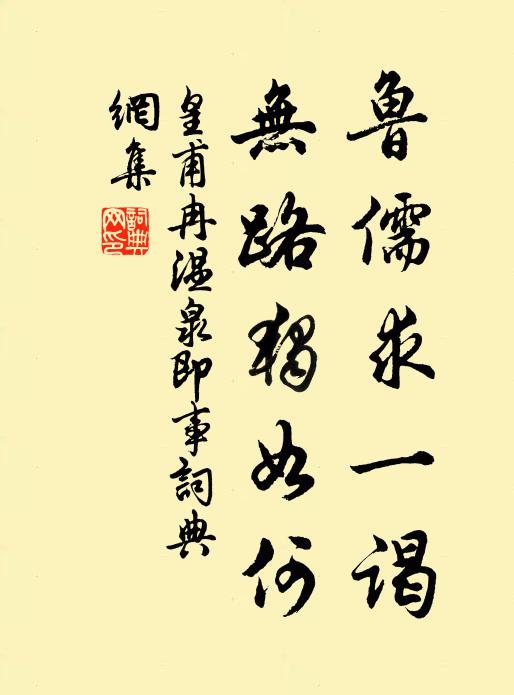 魯儒求一謁
無路獨如何
皇甫冉溫泉即事詞典
網集
詞典
网印